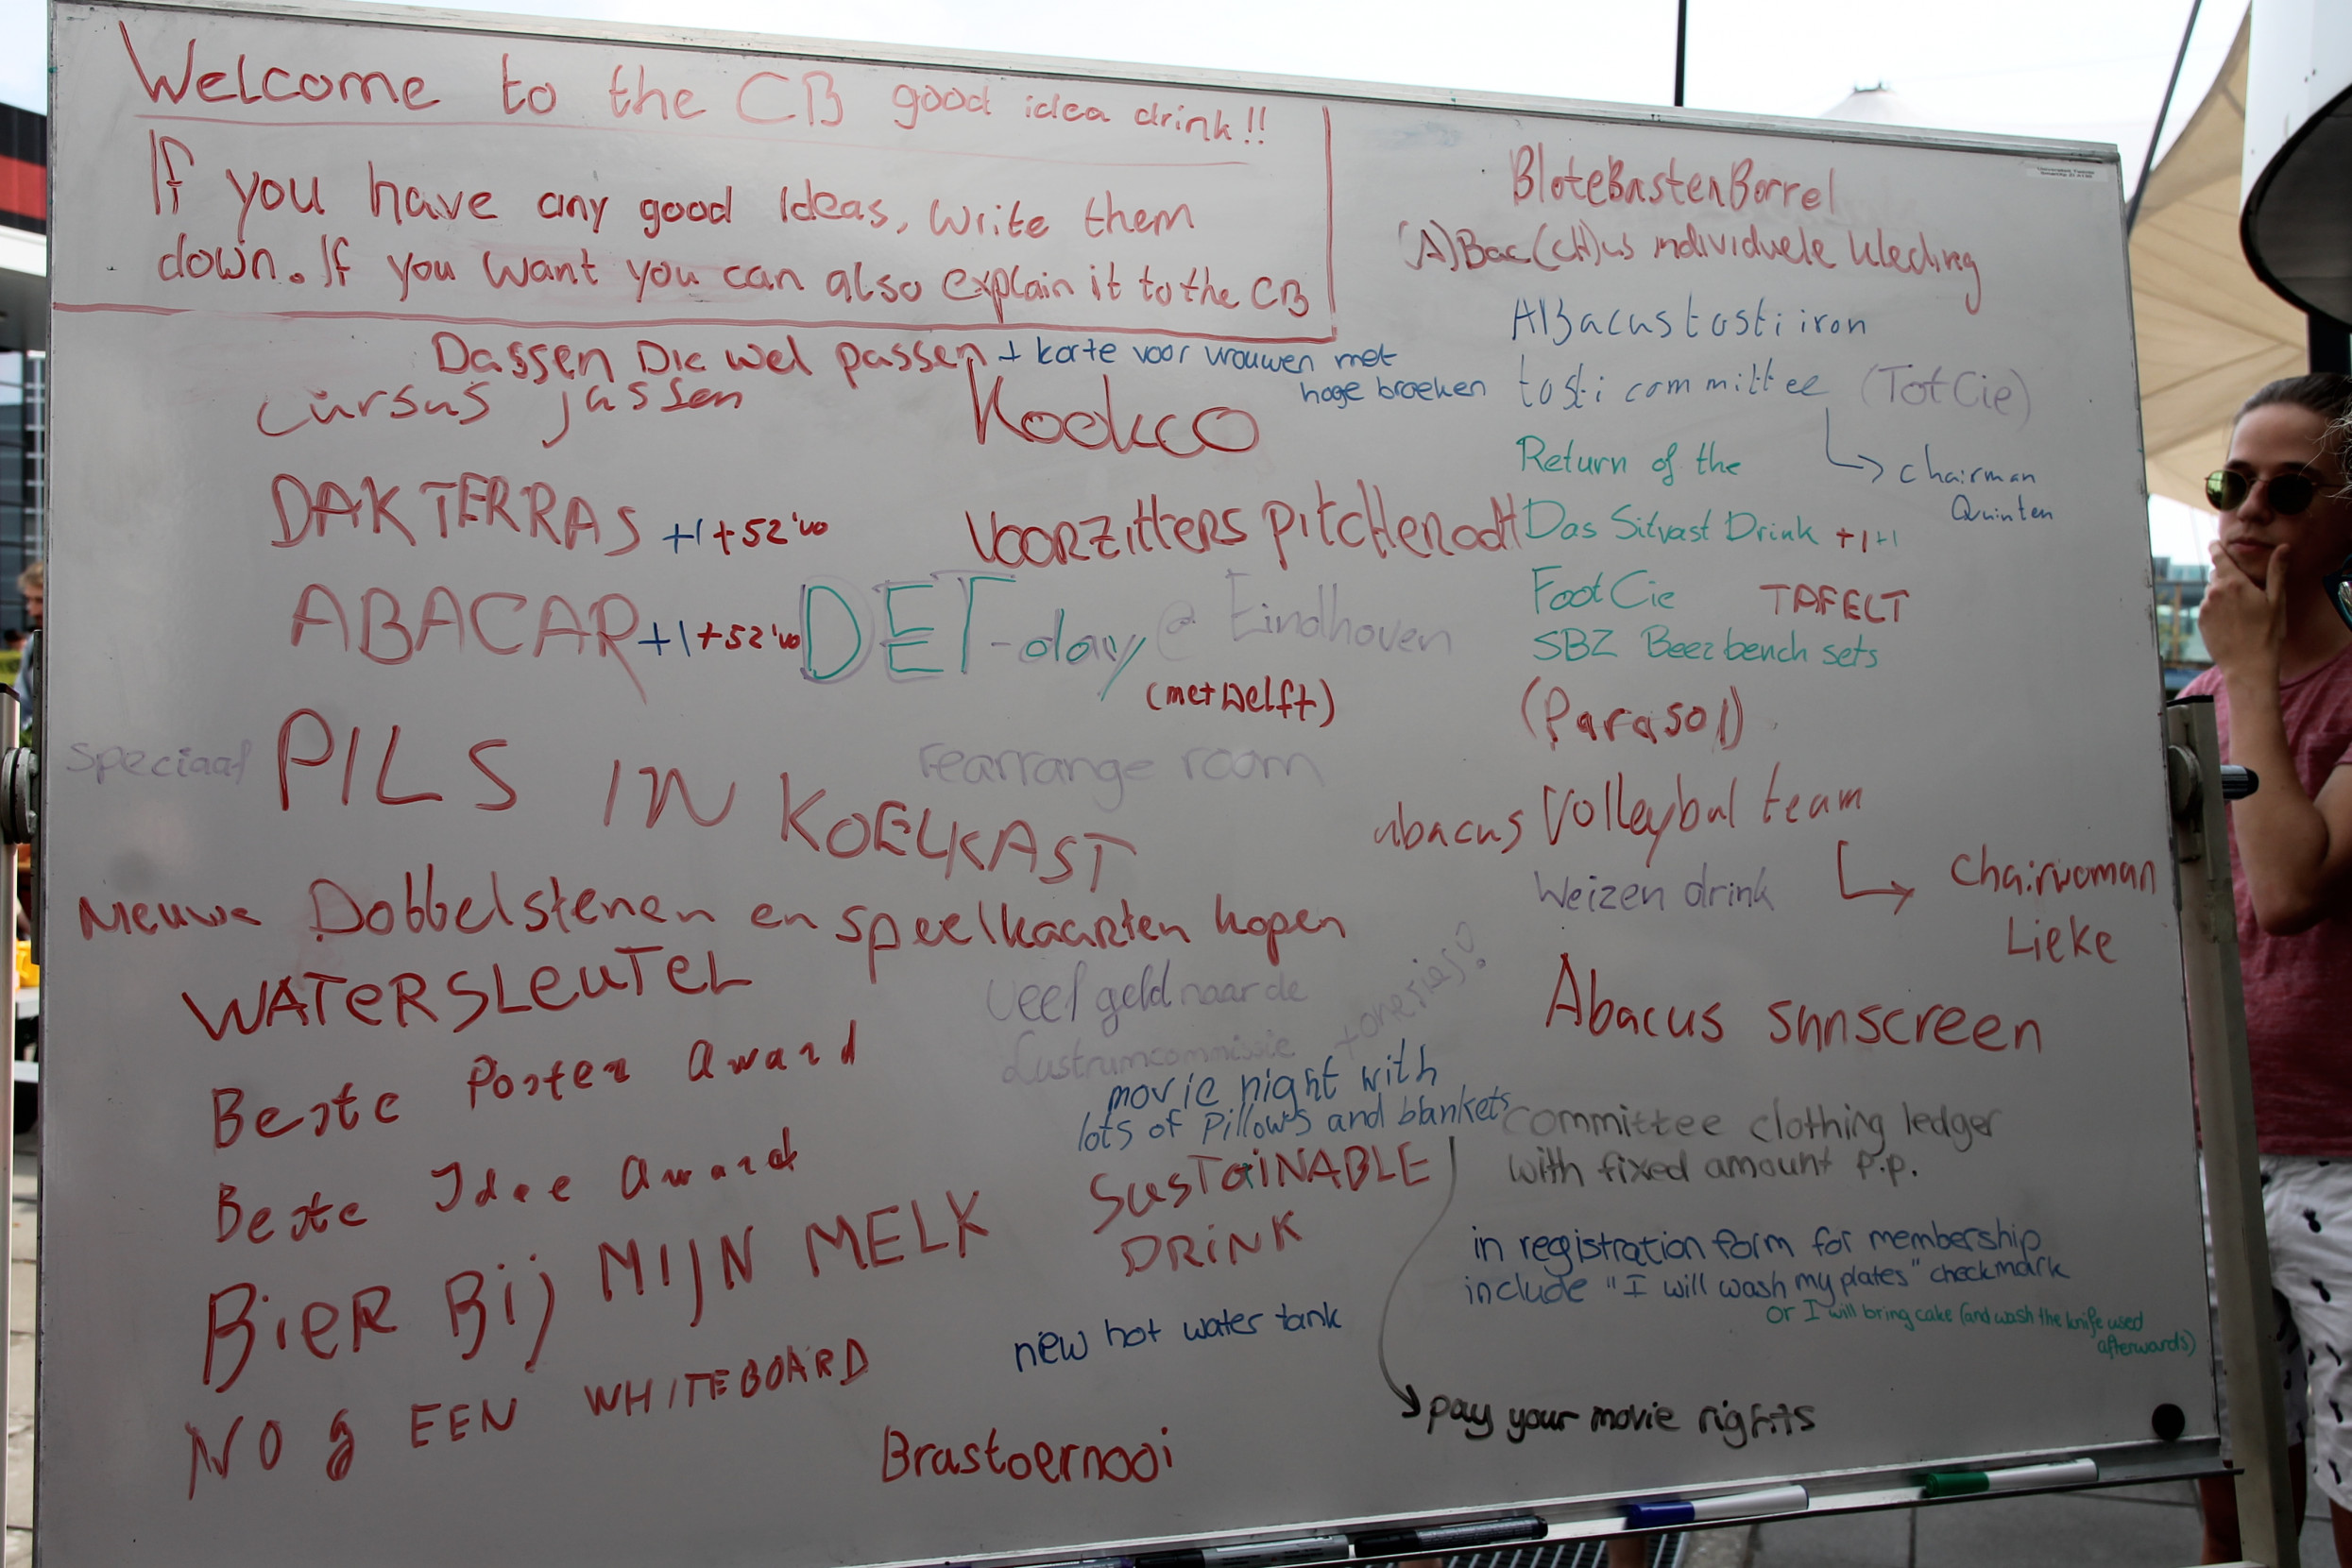 Welcome to the CB good idea drink!!
If you have any good Ideas, write them
down. If you want you can also explain it to the CB
Dassen Die wel passen + korte voor vrouwen met
hoge broeken
cursus jassen
Kookco
DAKTERRAS +1 +52 'vo
VOORZITTERS PITCHENODH
ABACAR +1 +52 'vo
DET-day @ Eindhoven
(met Delft)
speciaal PILS IN KOELKAST
rearrange room
Nieuwe Dobbelstenen en speelkaarten kopen
WATERSLEUTEL
veel geld naar de
Lustrumcommissie
Beste Poster Award
movie night with
lots of Pillows and blankets
Beste Idee Award
SUSTAINABLE
DRINK
BIER BIJ MIJN MELK
new hot water tank
NOG EEN WHITEBOARD
Brastoernooi
BloteBastenBorrel
(A)Bac(ch)us individuele kleding
ABacus tosti iron
tosti committee (TotCie)
chairman
Quinten
Return of the
Das Sitvast Drink +1 +1
FootCie TAFELT
SBZ Beerbench sets
(Parasol)
abacus Volleybal team
Chairwoman
Lieke
Weizen drink
Abacus sunscreen
committee clothing ledger
with fixed amount p.p.
in registration form for membership
include "I will wash my plates" checkmark
or I will bring cake (and wash the knife used
afterwards)
pay your movie rights